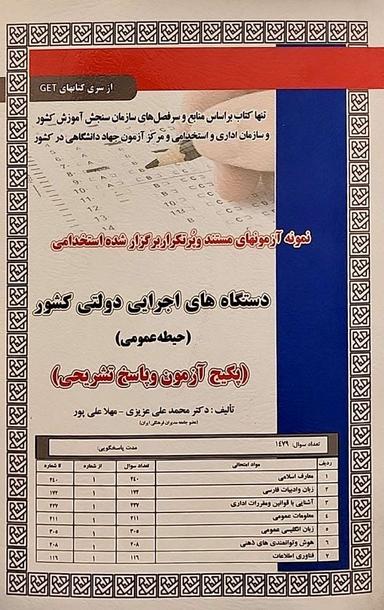 از سری کتابهای GET
تنها کتاب براساس منابع و سرفصل‌های سازمان سنجش آموزش کشور
و سازمان اداری و استخدامی و مرکز آزمون جهاد دانشگاهی در کشور
نمونه آزمونهای مستند وپُرتکراربرگزار شده استخدامی
دستگاه های اجرایی دولتی کشور
(حیطه عمومی)
(پکیج آزمون وپاسخ تشریحی)
تألیف: دکتر محمد علی عزیزی - مهلا علی پور
(عضو جامعه مدیران فرهنگی ایران)
تعداد سوال: ۱۴۷۹ مدت پاسخگویی:
ردیف مواد امتحانی تعداد سوال از شماره تا شماره
۱ معارف اسلامی ۲۴۰ ۱ ۲۴۰
۲ زبان وادبیات فارسی ۱۷۲ ۱ ۱۷۲
۳ آشنایی با قوانین ومقررات اداری ۲۲۷ ۱ ۲۲۷
۴ معلومات عمومی ۲۱۱ ۱ ۲۱۱
۵ زبان انگلیسی عمومی ۳۰۸ ۱ ۳۰۸
۶ هوش وتوانمندی های ذهنی ۲۰۸ ۱ ۲۰۸
۷ فناوری اطلاعات ۱۱۶ ۱ ۱۱۶